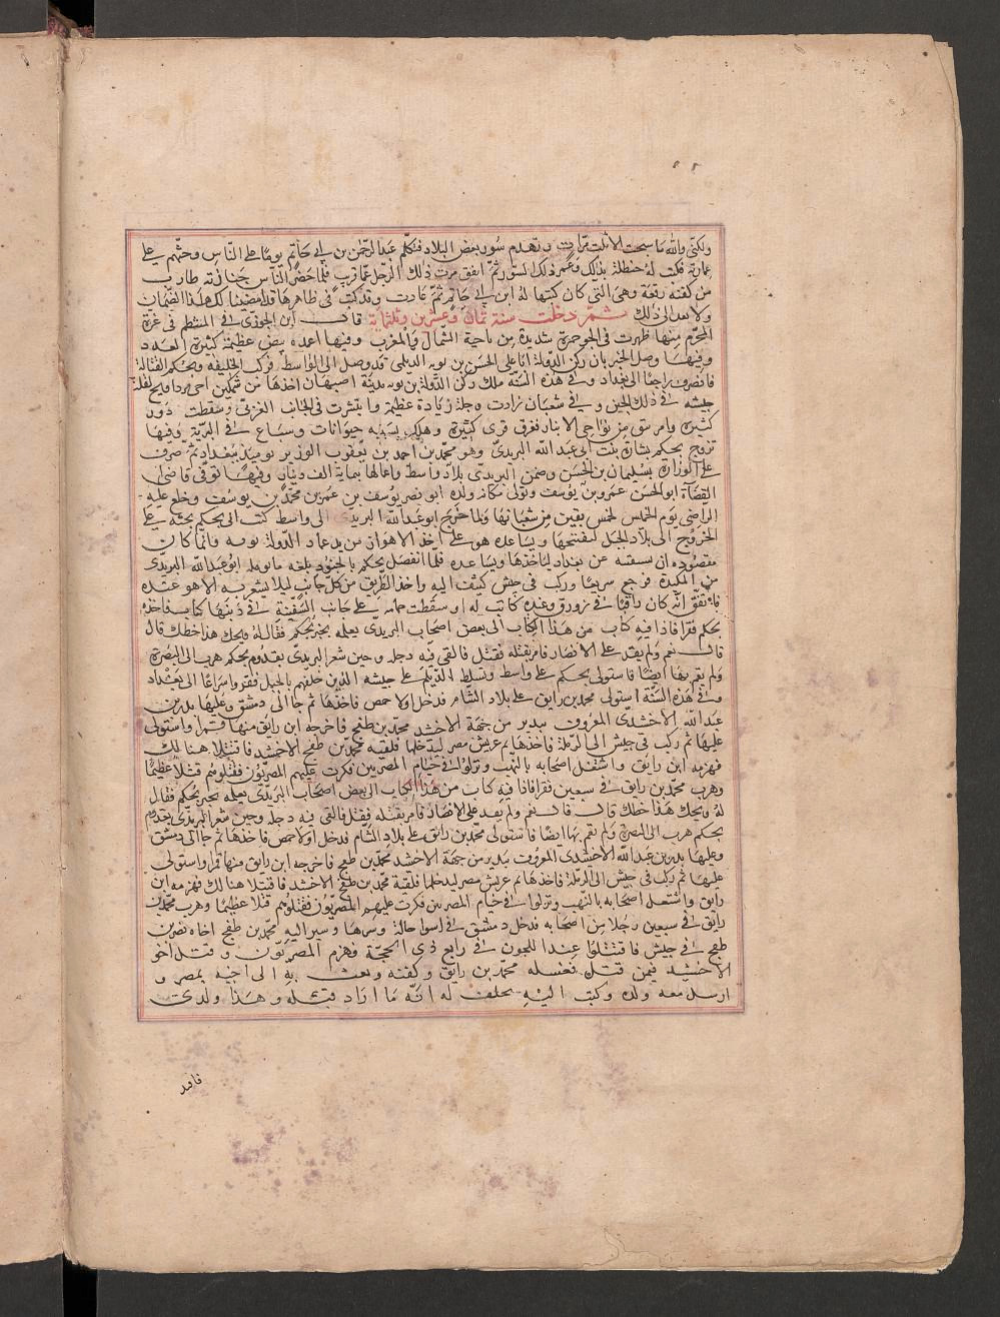 ولكنى والله ما سبحت الا ثلث مرات وتهدم سور بعض البلاد فتكلم عبد الرحمن بن ابي حاتم يوما على الناس وحثهم على
عمارته فكتب له خطه بذلك وعمر ذلك السور ثم اتفق موت ذلك الرجل عما قريب فلما حضر الناس جنازته طارت
من كفنه رقعة وهى التى كان كتبها له ابن ابي حاتم ثم عادت وقد كتب فى ظاهرها قد امضينا لك هذا الضمان
ولا تعد الى ذلك ثم دخلت سنة ثمان وعشرين وثلثماية قال ابن الجوزى فى المنتظم فى غرة
المحرم منها ظهرت فى الجو حمرة شديدة من ناحية الشمال والمغرب وفيها اعمدة بيض عظيمة كثيرة العدد
وفيها وصل الخبر بان ركن الدولة ابا على الحسن بن بويه الديلمى قد وصل الى واسط فركب الخليفة وبحكم لقتاله
فانصرف راجعا الى بغداد وفى هذه السنة ملك ركن الدولة بن بويه مدينة اصبهان اخذها من
جيشه فى ذلك الحين وفى شعبان زادت دجلة زيادة عظيمة وانتشرت فى الجانب الغربى وسقطت دور
كثيرة وانبثق من نواحى الانبار فغرق قرى كثيرة وهلك بسببه حيوانات وسباع فى البرية وفيها
تزوج بحكم بسارة بنت ابى عبد الله البريدى وهو محمد بن احمد بن يعقوب الوزير يومئذ ببغداد ثم صرف
عن الوزارة بسليمان بن الحسن وضمن البريدى بلاد واسط واعمالها بماية الف دينار وفيها توفى قاضى
القضاة ابو الحسن عمر بن يوسف وتولى مكانه ولده ابو نصر يوسف بن عمر بن محمد بن يوسف وخلع عليه
الراضى يوم الخميس لخمس بقين من شعبانها ولما خرج ابو عبد الله البريدى الى واسط كتب الى بحكم يحثه على
الخروج الى بلاد الجبل ليفتحها ويساعده هو على اخذ الاهواز من يد عماد الدولة بويه وانما كان
مقصوده ان يبعده عن بغداد لياخذها ويساعده فلما انفصل بحكم بالجنود بلغه ما يومله ابو عبد الله البريدى
من المكيدة فرجع سريعا وركب فى جيش كثيف اليه واخذ الطريق من كل جانب ليلا يشعر به الا هو عنده
فاتفق انه كان راكبا فى زورق وعنده كاتب له اذ سقطت حمامة على جانب السفينة فى ذنبها كتاب فاخذه
بحكم فقرا فاذا فيه كتاب من هذا الكاتب الى بعض اصحاب البريدى يعلمه بخبر بحكم فقال له ويحك هذا خطك قال
قال نعم ولم يقدر على الانكار فامر بقتله فقتل فالقى فى دجلة وحين شعر البريدى بقدوم بحكم هرب الى البصرة
ولم يقم بها ايضا فاستولى بحكم على واسط وتسلط الديلم على جيشه الذين خلفهم بالجبل ففروا سراعا الى بغداد
وفى هذه السنة استولى محمد بن رايق على بلاد الشام فدخل اولا حمص فاخذها ثم جا الى دمشق وعليها بدر بن
عبد الله الاخشيدى المعروف ببدير من جهة الاخشيد محمد بن طغج فاخرجه ابن رايق منها قهرا واستولى
عليها ثم ركب فى جيش الى الرملة فاخذها ثم عريش مصر ليدخلها فلقيه محمد بن طغج الاخشيد فاقتتلا هنالك
فهزمه ابن رايق واشتغل اصحابه بالنهب ونزلوا فى خيام المصريين فكرت عليهم المصريون فقتلوهم قتلا عظيما
وهرب محمد بن رايق فى سبعين فقرا فاذا فيه كتاب من هذا الكاتب الى بعض اصحاب البريدى يعلمه بخبر بحكم فقال
له ويحك هذا خطك قال نعم ولم يقد على الانكار فامر بقتله فقتل فالقى فى دجلة وحين شعر البريدى بقدوم
بحكم هرب الى البصرة ولم يقم بها ايضا فاستولى محمد بن رايق على بلاد الشام فدخل اولا حمص فاخذها ثم جا الى دمشق
وعليها بدر بن عبد الله الاخشيدى المعروف ببدير من جهة الاخشد محمد بن طغج فاخرجه ابن رايق منها قهرا واستولى
عليها ثم ركب فى جيش الى الرملة فاخذها ثم عريش مصر ليدخلها فلقيه محمد بن طغج الاخشد فاقتتلا هنالك فهزمه ابن
رايق واشتغل اصحابه بالنهب ونزلوا فى خيام المصريين فكرت عليهم المصريون فقتلوهم قتلا عظيما وهرب محمد بن
رايق فى سبعين رجلا من اصحابه فدخل دمشق فى اسوا حالة وشرها وسير اليه محمد بن طغج اخاه نصر بن
طغج فى جيش فاقتتلوا عند اللجون فى رابع ذى الحجة فهزم المصريون وقتل اخو
الاخشد فيمن قتل فغسله محمد بن رايق وكفنه وبعث به الى اخيه بمصر و
ارسل معه ولده وكتب اليه يحلف له انه ما اراد قتله وهذا ولدى
فاقد